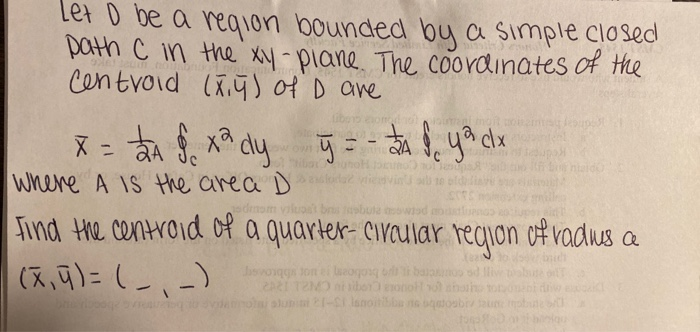 Let D be a region bounded by a simple closed
path C in the xy-plane. The coordinates of the
centroid (x̄,ȳ) of D are
x̄ = 1/2A ∮c x² dy ȳ = - 1/2A ∮c y² dx
where A is the area D
Find the centroid of a quarter-circular region of radius a
(x̄,ȳ) = (_,_)